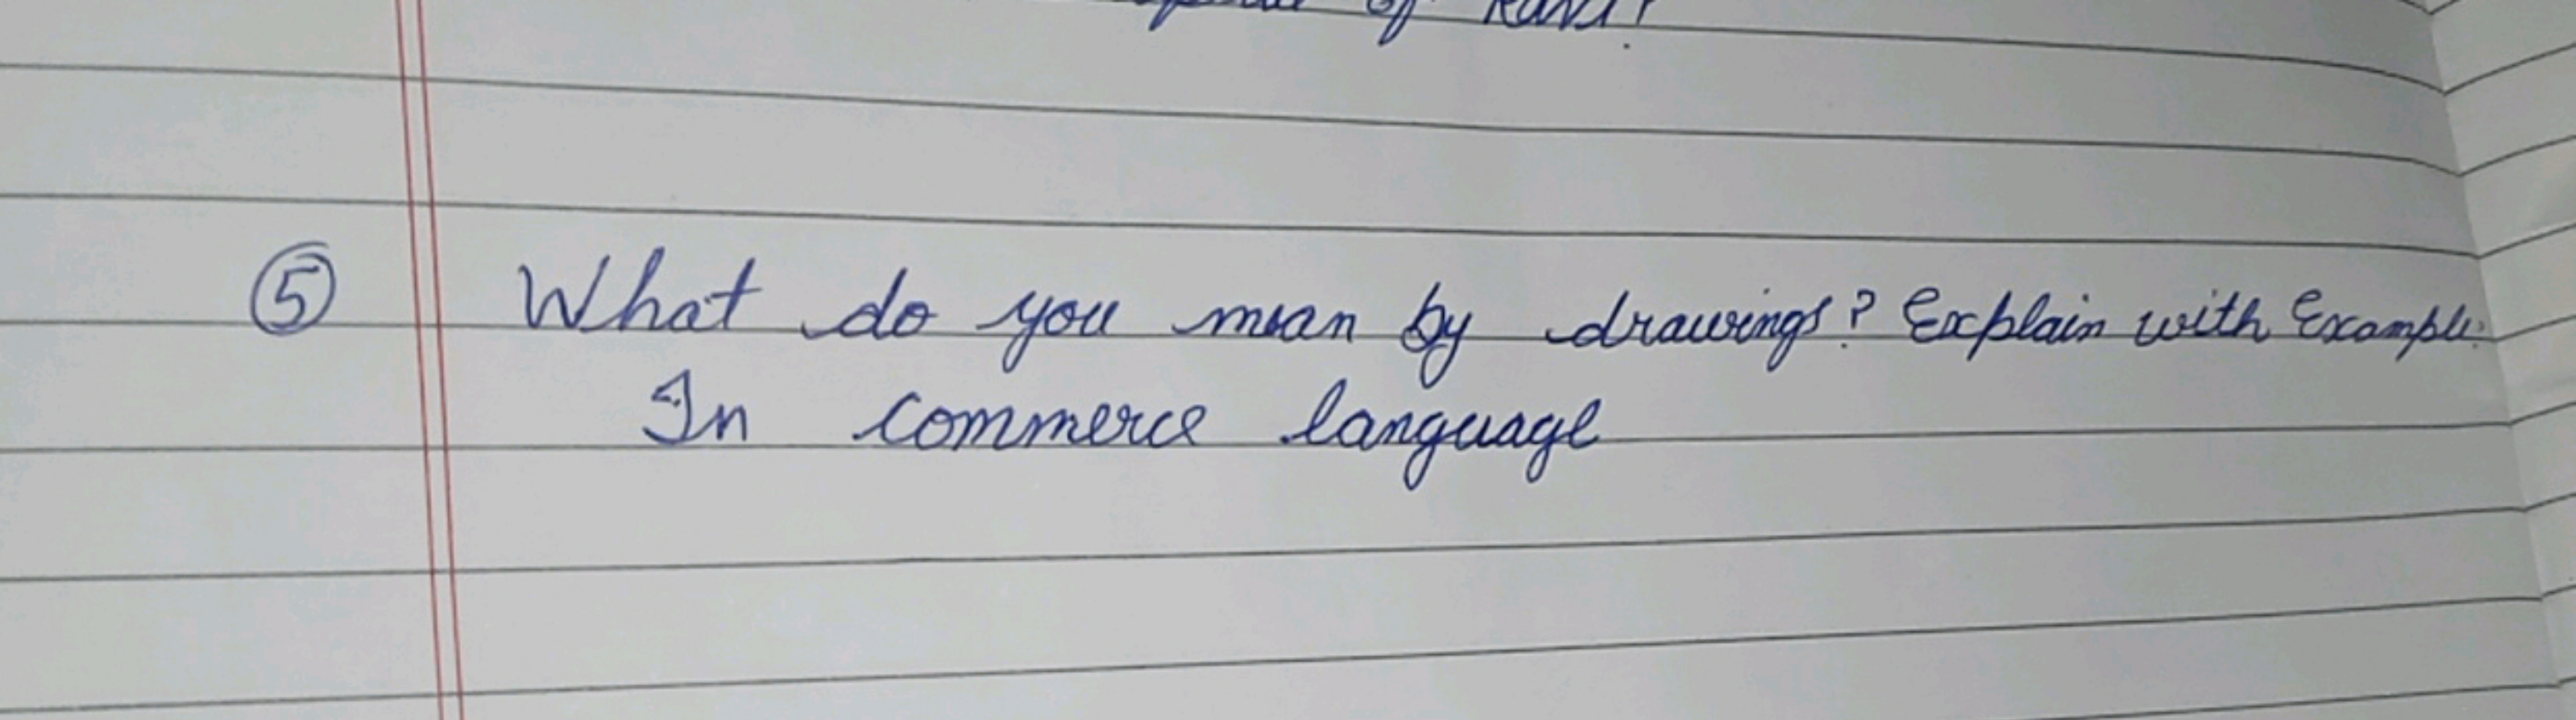 of
⑤ What do you mean by drawings? Explain with Example.
In commerce language